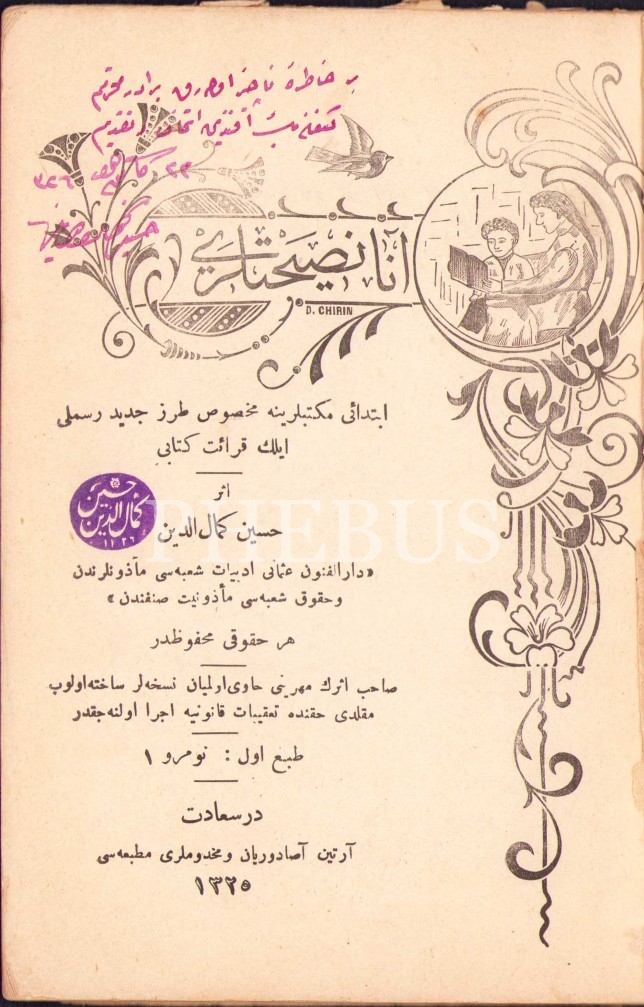 بر خاطرهٔ ناچيز اوله‌رق برادر محترم
افندی‌يه اتحاف و تقديم
٢٣
٣٢٦
حسين كمال الدين
آنا نصيحتلری
D. CHIRIN
ابتدائی مكتبلرينه مخصوص طرز جديد رسملی
ايلك قرائت كتابی
اثر
حسين كمال الدين
حسين كمال الدين
١٣٢٦
PHEBUS
«دارالفنون عثمانی ادبيات شعبه‌سی مأذونلرندن
وحقوق شعبه‌سی مأذونيت صنفندن»
هر حقوقی محفوظدر
صاحب اثرك مهرينی حاوی اولميان نسخه‌لر ساخته اولوب
مقلدی حقنده تعقيبات قانونيه اجرا اولنه‌جقدر
طبع اول : نومرو ١
درسعادت
آرتين آصادوريان ومخدوملری مطبعه‌سی
١٣٢٥